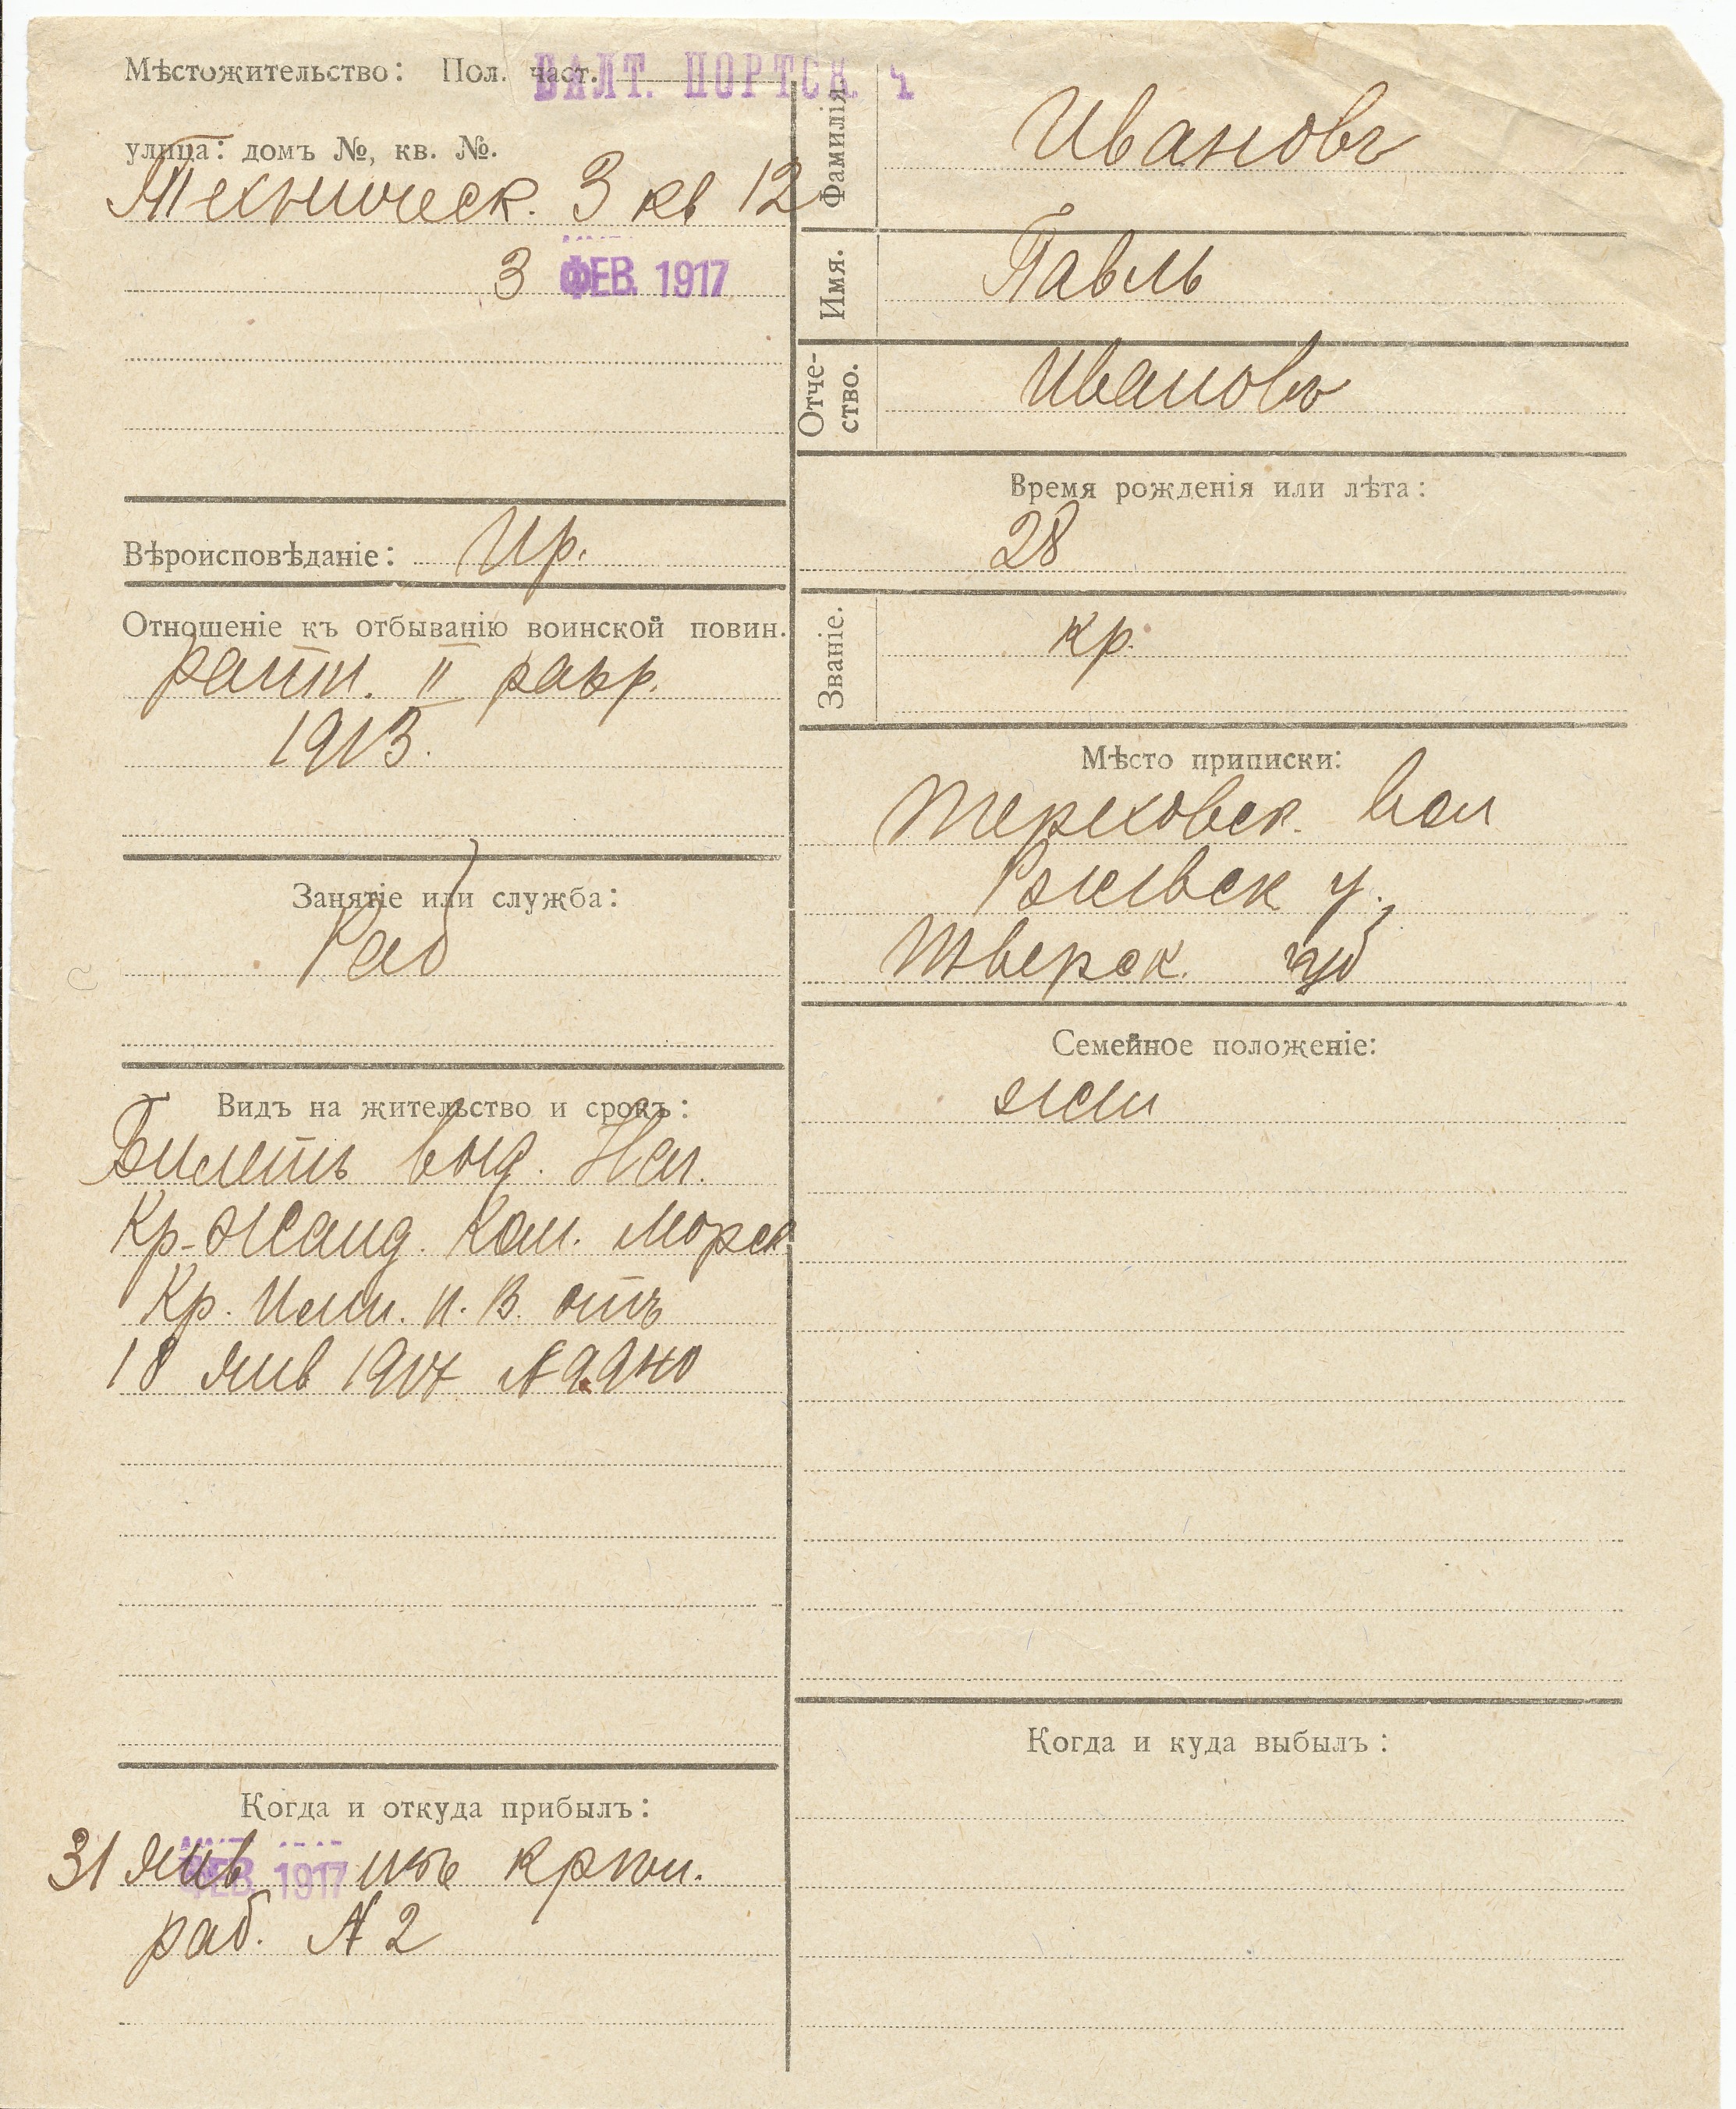 Мѣстожительство: Пол. част. БАЛТ. ПОРТСК. Ч
улица: домъ №, кв. №.
Техническ. 3 кв 12
3 ФЕВ. 1917
Вѣроисповѣданіе: Пр.
Отношеніе къ отбыванію воинской повин.
ратн. II разр.
1913.
Занятіе или служба:
Раб
Видъ на жительство и срокъ:
Билетъ выд. Нач.
Кр-Жанд. Ком. Морск
Кр. Имп. П. В. отъ
18 янв 1917 №
Когда и откуда прибылъ:
31 янв ФЕВ. 1917 изъ крѣп.
раб. № 2
Фамилія. Ивановъ
Имя. Павлъ
Отче-
ство. Ивановъ
Время рожденія или лѣта:
28
Званіе. кр.
Мѣсто приписки:
вол
Ржевск у.,
Тверск. губ
Семейное положеніе:
жен
Когда и куда выбылъ: